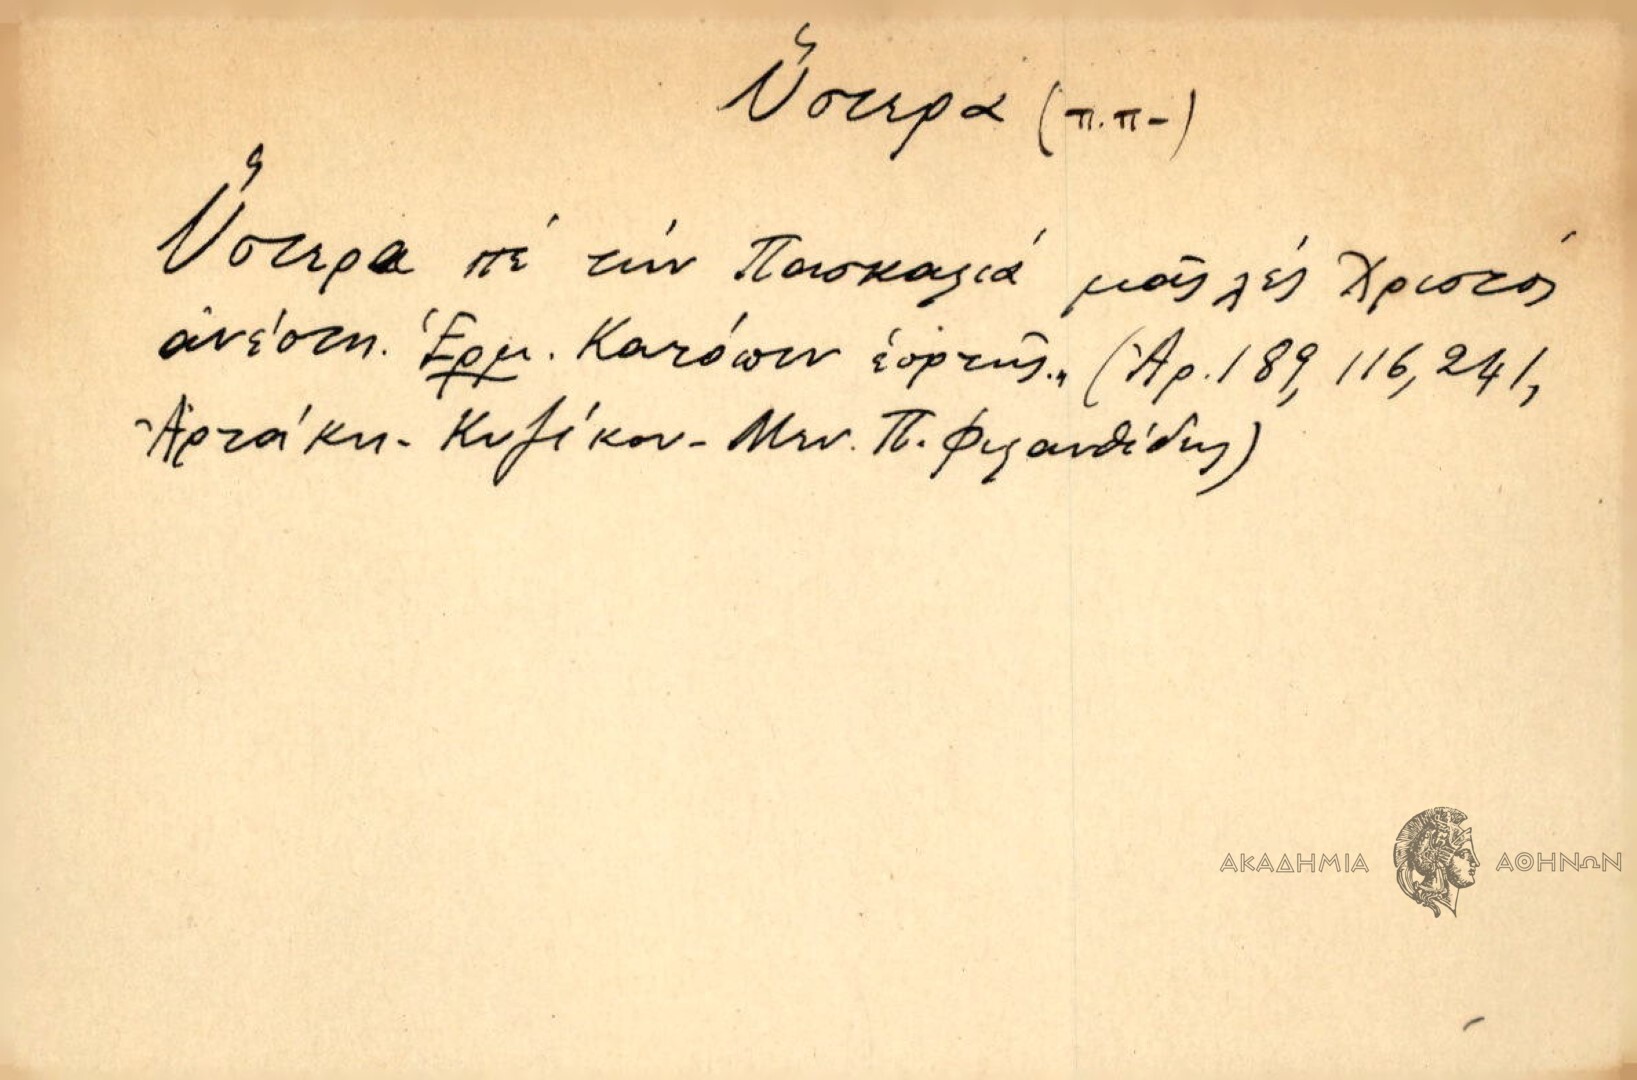 Ὕστερα (π.π-)
Ὕστερα πέ τήν Πασκαλιά μᾶς λές Χριστός
ἀνέστη. Ἑρμ. Κατόπιν ἑορτῆς.„ (Ἀρ. 189, 116, 241,
Ἀρτάκη - Κυζίκου - Μην. Π. Φιλανθίδης)
ΑΚΑΔΗΜΙΑ ΑΘΗΝΩΝ